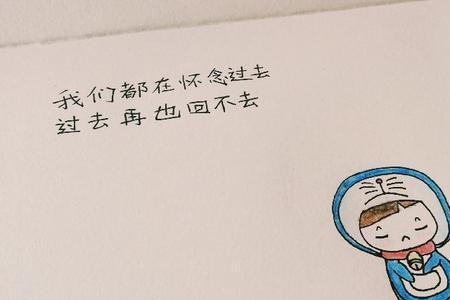 我们都在怀念过去
过去再也回不去